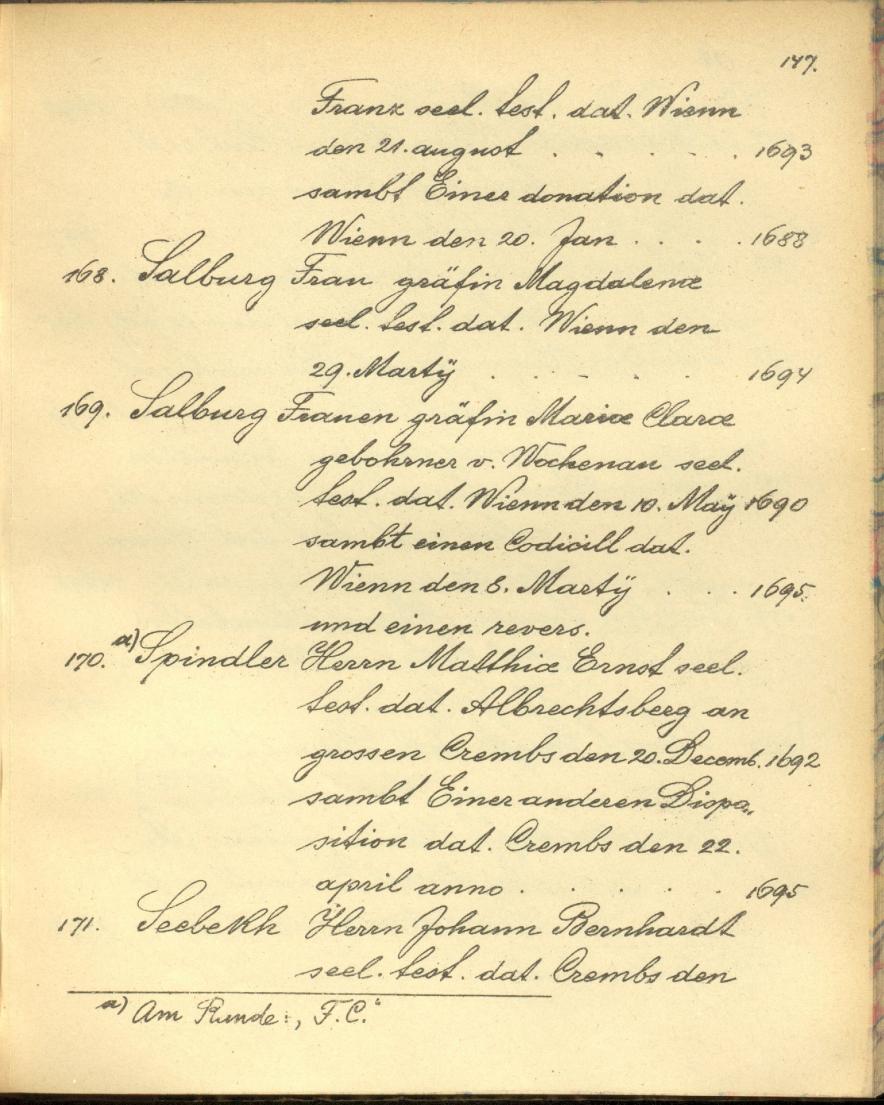 147.
Franz seel. test. dat. Wienn
den 21. august . . . . . 1693
sambt Einer donation dat.
Wienn den 20. Jan . . . . 1688
168. Salburg Frau gräfin Magdalenæ
seel. test. dat. Wienn den
29. Martÿ . . . . . 1694
169. Salburg Frauen gräfin Mariæ Claræ
gebohrner v. Wochenau seel.
test. dat. Wienn den 10. Maÿ 1690
sambt einen Codicill dat.
Wienn den 8. Martÿ . . . 1695.
und einen revers.
170. a) Spindler Herrn Matthiæ Ernst seel.
test. dat. Albrechtsberg an
grossen Crembs den 20. Decemb. 1692
sambt Einer anderen Dispo„
sition dat. Crembs den 22.
april anno . . . . . 1695
171. Seebekh Herrn Johann Bernhardt
seel. test. dat. Crembs den
a) Am Rande: „F.C."